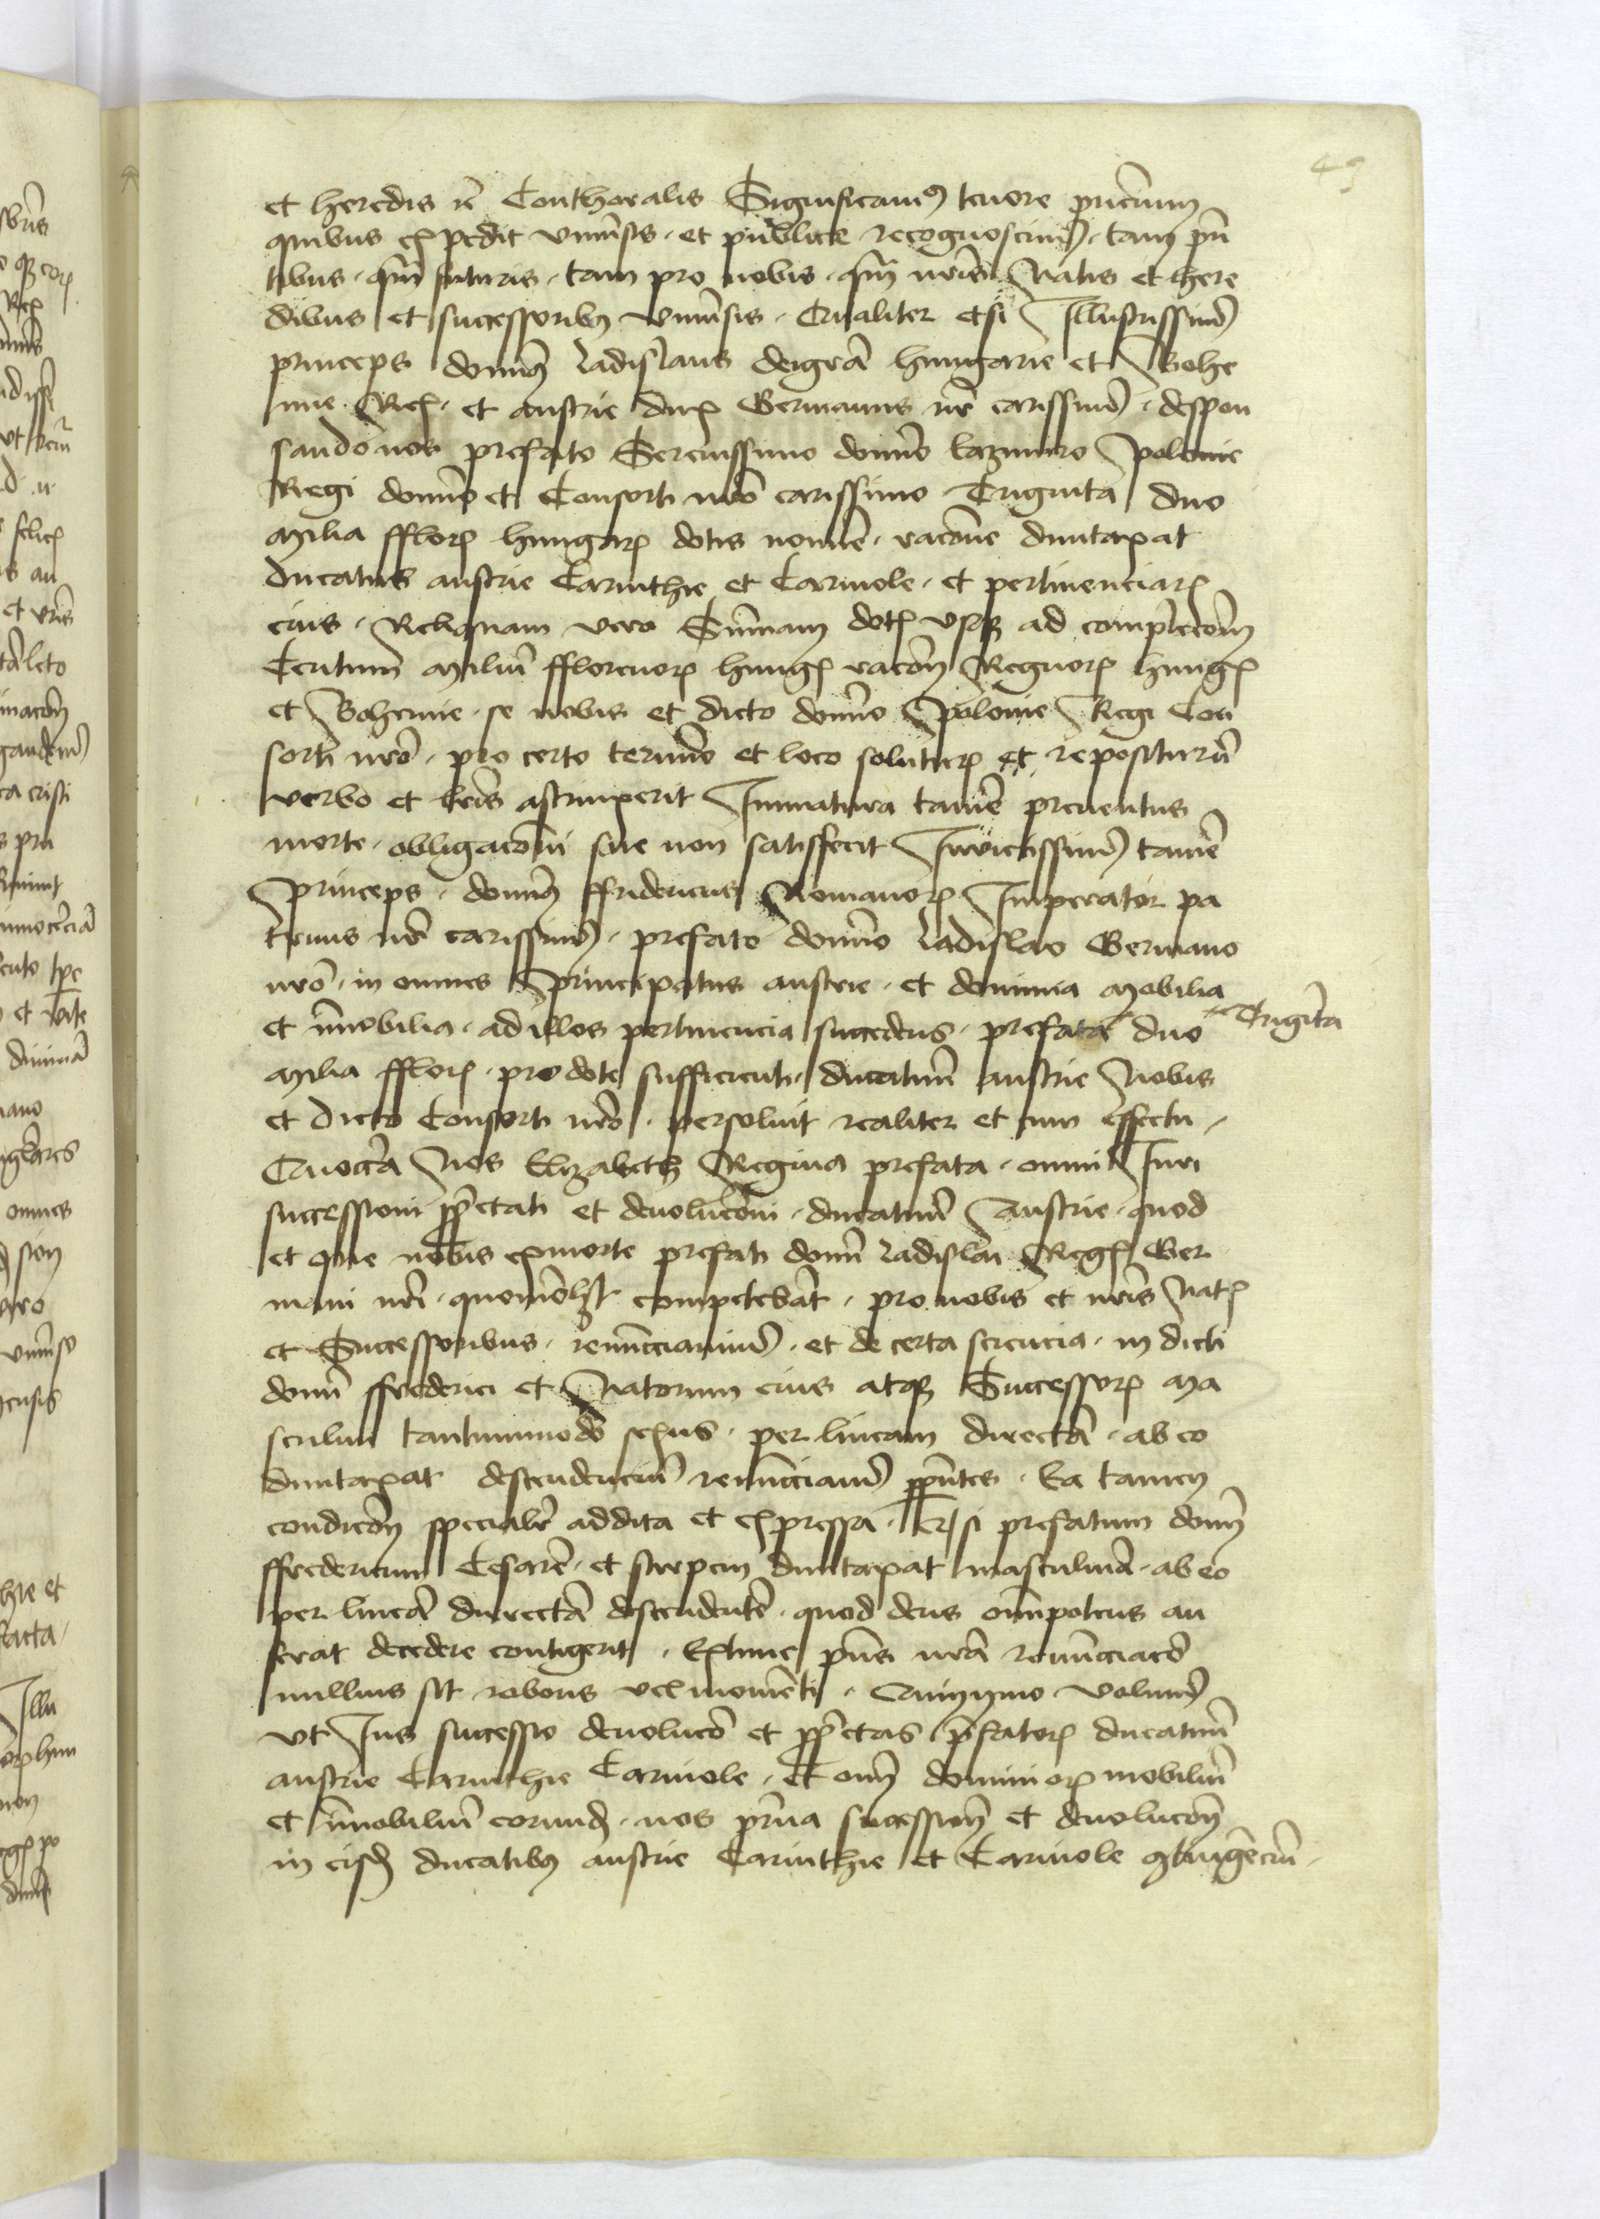 43
et heredis rc Conthoralis Significamus tenore pncium
quibus expedit vniusis . et publice recognoscimus . tam pn
tibus . qm futuris . tam pro nobis . qm nris Natis et here
dibus et successoribus vniusis . Qualiter etsi Illustrissimus
princeps dominus ladislaus dei gra hungarie et Bohe
mie Rex . et austrie dux Germanus nr carissimus . despon
sando nos prefato Serenissimo domino kazimiro Polonie
Regi domino et Consorti nro carissimo Triginta duo
milia fflorum hungarum dotis nomine . racone duntaxat
ducatus austrie Carinthie et Carniole . et pertinenciarum
eius . Reliquam vero Summam dotis vsque ad completom
Centum milium fflorenorum hungis racom Regnorum hungis
et Bohemie . se nobis et dicto domino Polonie Regi Con
sorti nro . pro certo termino et loco soluturum et repositurum
verbo et lris astrinxerit Inmatura tamen preuentus
morte . obligacoi sue non satisfecit Inuictissimus tamen
Princeps . dominus ffridericus Romanorum Imperator pa
truus nr carissimus . prefato domino ladislao Germano
nro . in omnes Principatus austrie . et dominia mobilia
et inmobilia . ad illos pertinencia succedens . prefata duo Triginta
milia fflorum . pro dote sufficienti . ducatuum austrie Nobis
et dicto Consorti nro . persoluit realiter et cum effectu .
Quocca Nos Elizabeth Regina prefata . omni Iuri
successioni prietati et deuolucoi . ducatuum Austrie . quod
et que nobis ex morte prefati domini ladislai Regis Ger
mani nri . quomolibet competebat . pro nobis et nris Natis
et Successoribus . renuncciauimus . et de certa sciencia . in dicti
domini ffrederici et Natorum eius atque Successorum ma
sculini tantummodo sexus . per lineam directam . ab eo
duntaxat descendencium renuncciamus pntes . Ea tamen
condicom specialiter addita et expressa . Et si prefatum dominum
ffredericum Cesarem . et stirpem duntaxat masculinam . ab eo
per lineam directam descendentem . quod deus omnipotens au
ferat decedere contigerit . Extunc pns nra renuncciaco
nullius sit roboris vel momenti . Quinymo volumus
vt Ius successio deuoluco et prietas prefatorum ducatuum
austrie Carinthie Carniole . et omnium dominiorum mobilium
et inmobilium eorundem . nos prima successiom et deuolucom
in eisdem ducatibus austrie Carinthie et Carniole contingencium .